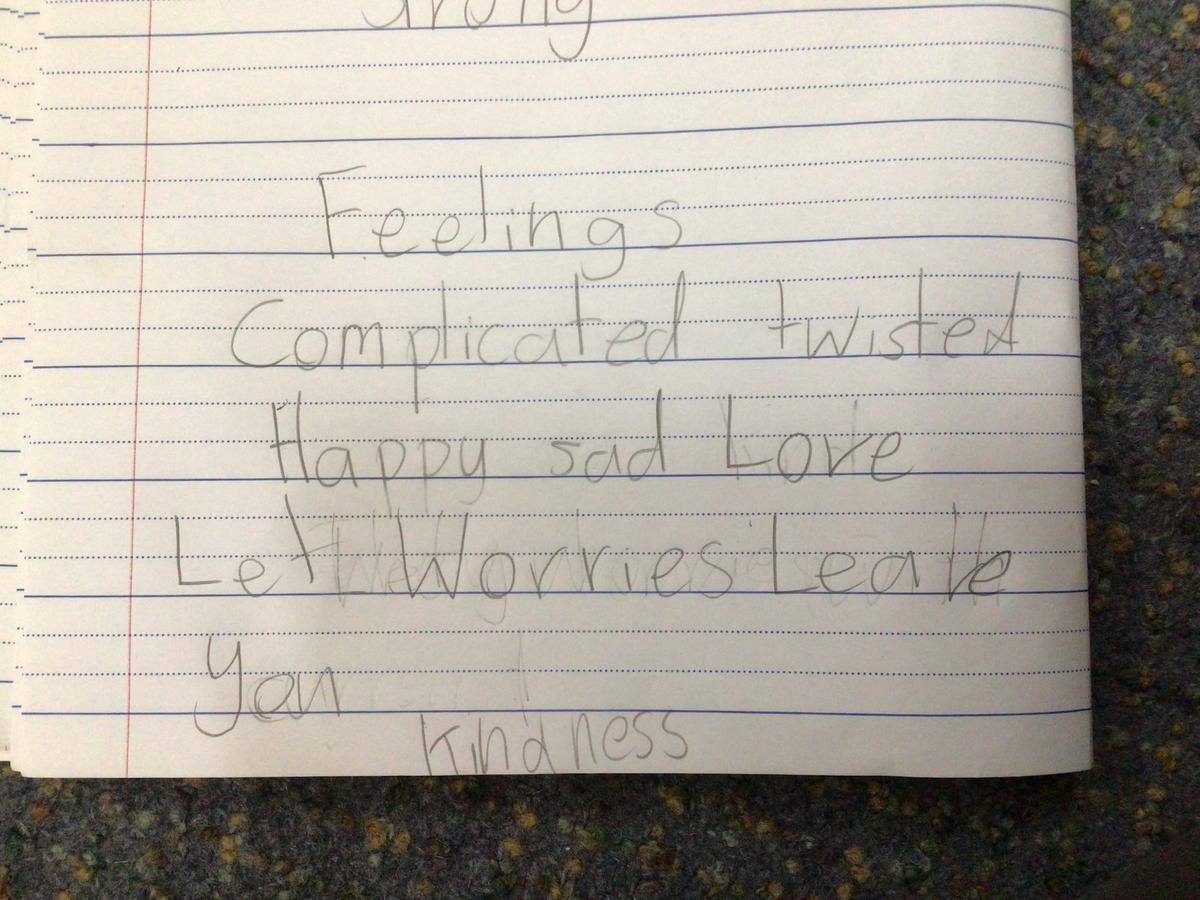 strong
Feelings
Complicated twisted
Happy sad Love
Let Worries Leave
you
Kindness